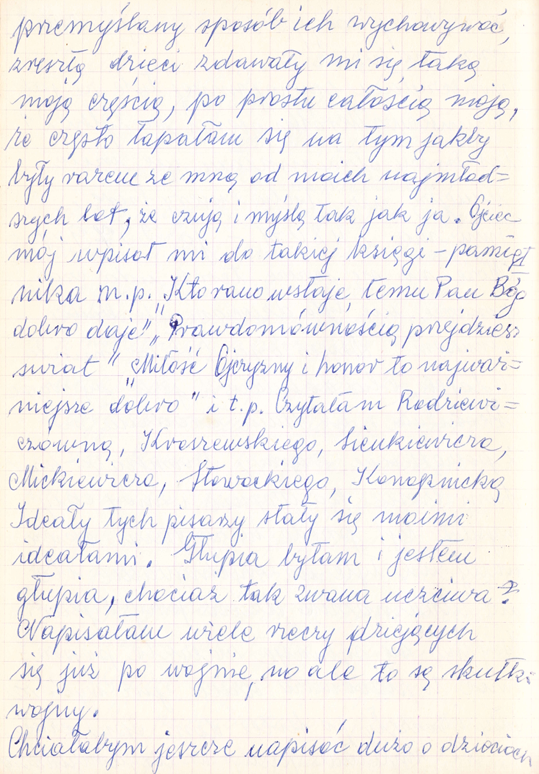 przemyślany sposób ich wychowywać,
zresztą dzieci zdawały mi się taką
moją częścią, po prostu całością moją,
że często łapałam się na tym jakby
były razem ze mną od moich najmłod=
szych lat, że czują i myślą tak jak ja. Ojciec
mój wpisał mi do takiej księgi – pamięt
nika m.p. „Kto rano wstaje, temu Pan Bóg
dobro daje” „Prawdomównością przejdziesz
świat” „Miłość Ojczyzny i honor to najważ=
niejsze dobro” i t.p. Czytałam Rodziewi=
czówną, Kraszewskiego, Sienkiewicza,
Mickiewicza, Słowackiego, Konopnicką
Ideały tych pisarzy stały się moimi
ideałami. Głupia byłam i jestem
głupia, chociaż tak zwana uczciwa?
Napisałam wiele rzeczy dziejących
się już po wojnie, no ale to są skutki
wojny.
Chciałabym jeszcze napisać dużo o dzieciach